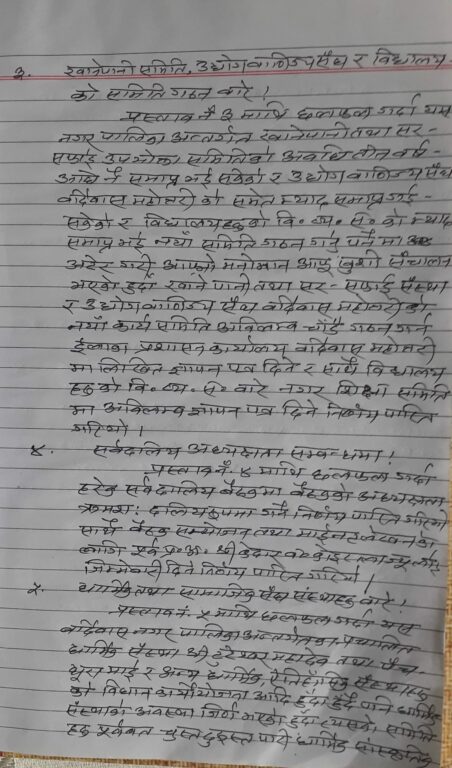 ३. खानेपानी समिति, उद्योग वाणिज्य संघ र विद्यालय-
को समिति गठन बारे ।
प्रस्ताव नं ३ माथि छलफल गर्दा यस
नगर पालिका अन्तर्गत खानेपानी तथा सर-
सफाई उपभोक्ता समितिको अवधि तीन वर्ष
अघि नै समाप्त भई सकेको र उद्योग वाणिज्य संघ
बर्दिवास महोत्तरी को समेत म्याद समाप्त गई-
सकेको र विद्यालयहरुको वि॰ व्य॰ स॰ को म्याद
समाप्त भई नयाँ समिति गठन गर्नु पर्ने मा
अटेर गरी आफ्नो मनोमान आफू खुशी संचालन
भएको हुँदा खाने पानी तथा सर-सफाई संस्था
र उद्योग वाणिज्य संघ बर्दिवास महोत्तरी को
नयाँ कार्य समिति अविलम्ब चाँडै गठन गर्न
ईलाका प्रशासन कार्यालय बर्दिवास महोत्तरी
मा लिखित ज्ञापन पत्र दिने र साथै विद्यालय
हरुको वि॰ व्य॰ स॰ बारे नगर शिक्षा समिति
मा अविलम्ब ज्ञापन पत्र दिने निर्णय पारित
गरियो ।
४. सर्वदालिय अध्यक्षता सम्बन्धमा ।
प्रस्ताव नं. ४ माथि छलफल गर्दा
हरेक सर्वदालिय बैठकमा बैठकको अध्यक्षता
क्रमश: दालिय रुपमा गर्ने निर्णय पारित गरियो
साथै बैठक सम्योजन तथा माईनुट लेखनको
लागि पूर्व प्र॰ अ॰ श्री केदार
जिम्मेवारी दिने निर्णय पारित गरियो ।
५. धार्मिक तथा सामाजिक संघ संस्थाहरु बारे ।
प्रस्ताव नं. ५ माथि छलफल गर्दा यस
बर्दिवास नगर पालिका अन्तर्गतका प्रचालित
धार्मिक संस्था श्री टुटेश्वर महादेव तथा
माई र अन्य धार्मिक ऐतिहाँसिक संस्थाहरु
को विधान कार्ययोजना आदि हुँदा हुँदै पनि धार्मिक
संस्थाको अवस्था जिर्ण भएको हुँदा त्यसको समिति
हरु पूर्ववत चुस्त दुरुस्त पारी धार्मिक सांस्कृतिक